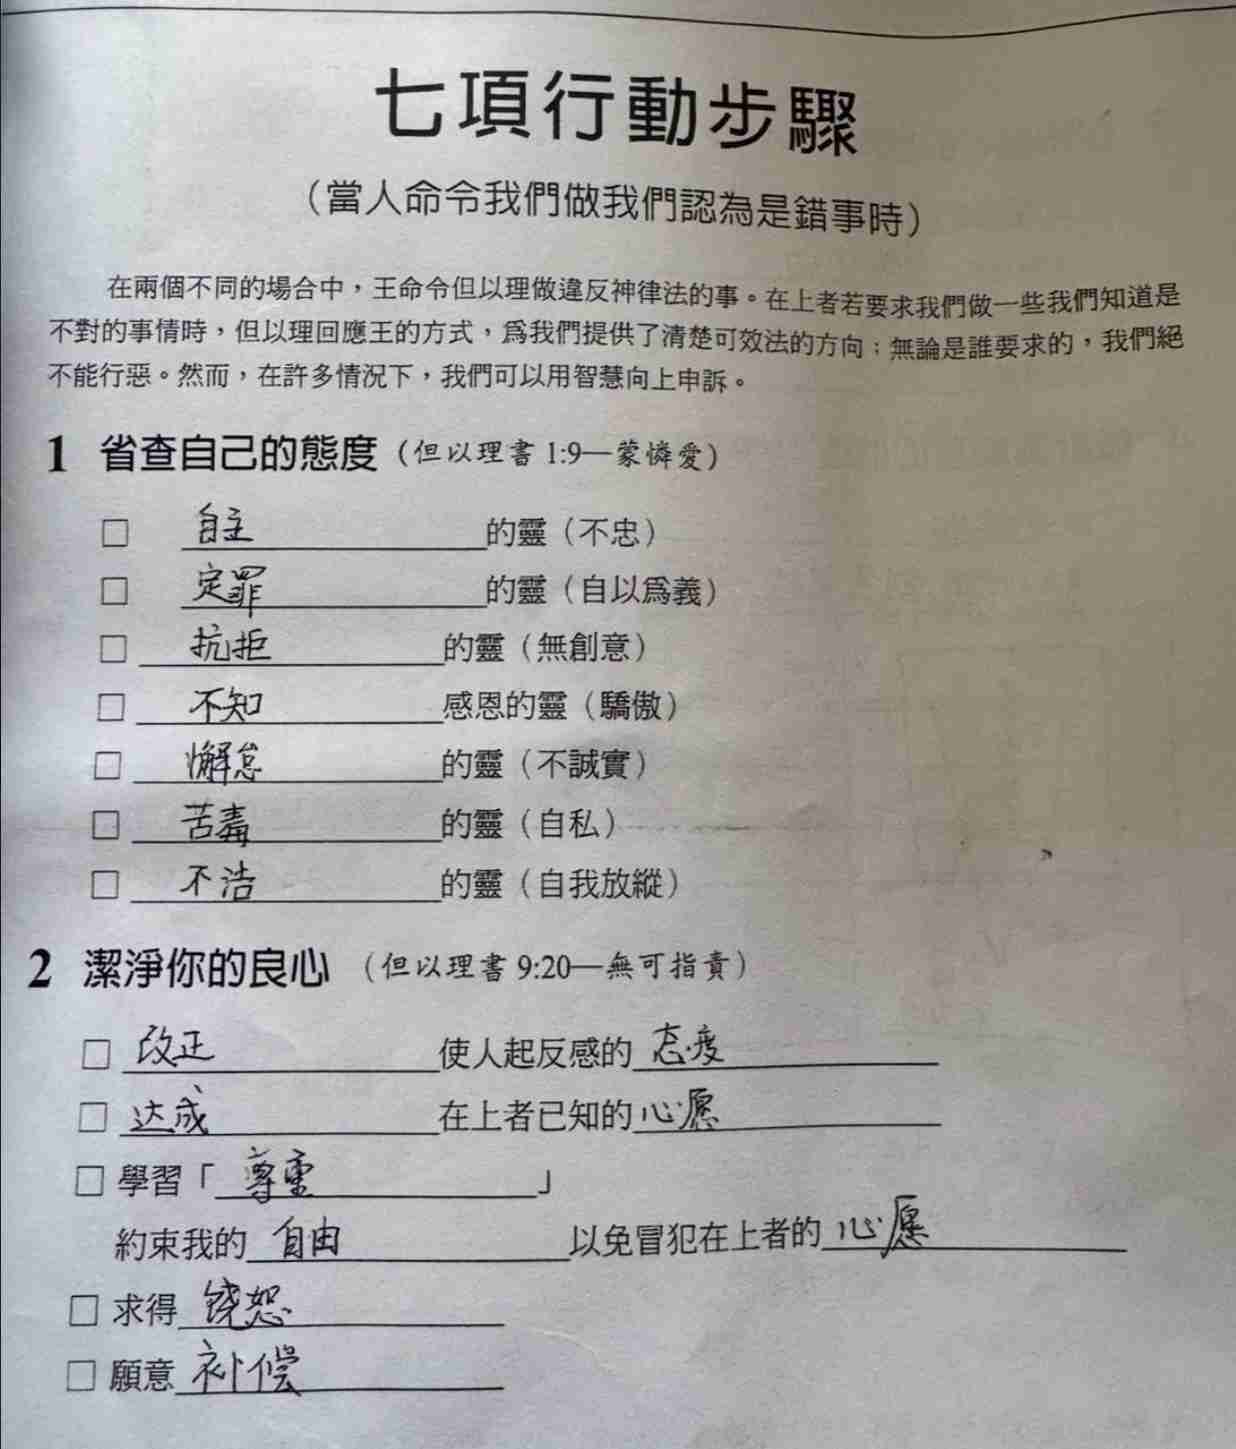 七項行動步驟
（當人命令我們做我們認為是錯事時）
在兩個不同的場合中，王命令但以理做違反神律法的事。在上者若要求我們做一些我們知道是
不對的事情時，但以理回應王的方式，爲我們提供了清楚可效法的方向；無論是誰要求的，我們絕
不能行惡。然而，在許多情況下，我們可以用智慧向上申訴。
1 省查自己的態度（但以理書 1:9—蒙憐愛）
□ 自主的靈（不忠）
□ 定罪的靈（自以爲義）
□ 抗拒的靈（無創意）
□ 不知感恩的靈（驕傲）
□ 懈怠的靈（不誠實）
□ 苦毒的靈（自私）
□ 不洁的靈（自我放縱）
2 潔淨你的良心（但以理書 9:20—無可指責）
□ 改正使人起反感的态度
□ 达成在上者已知的心愿
□ 學習「尊重」
約束我的自由以免冒犯在上者的心愿
□ 求得饶恕
□ 願意补偿